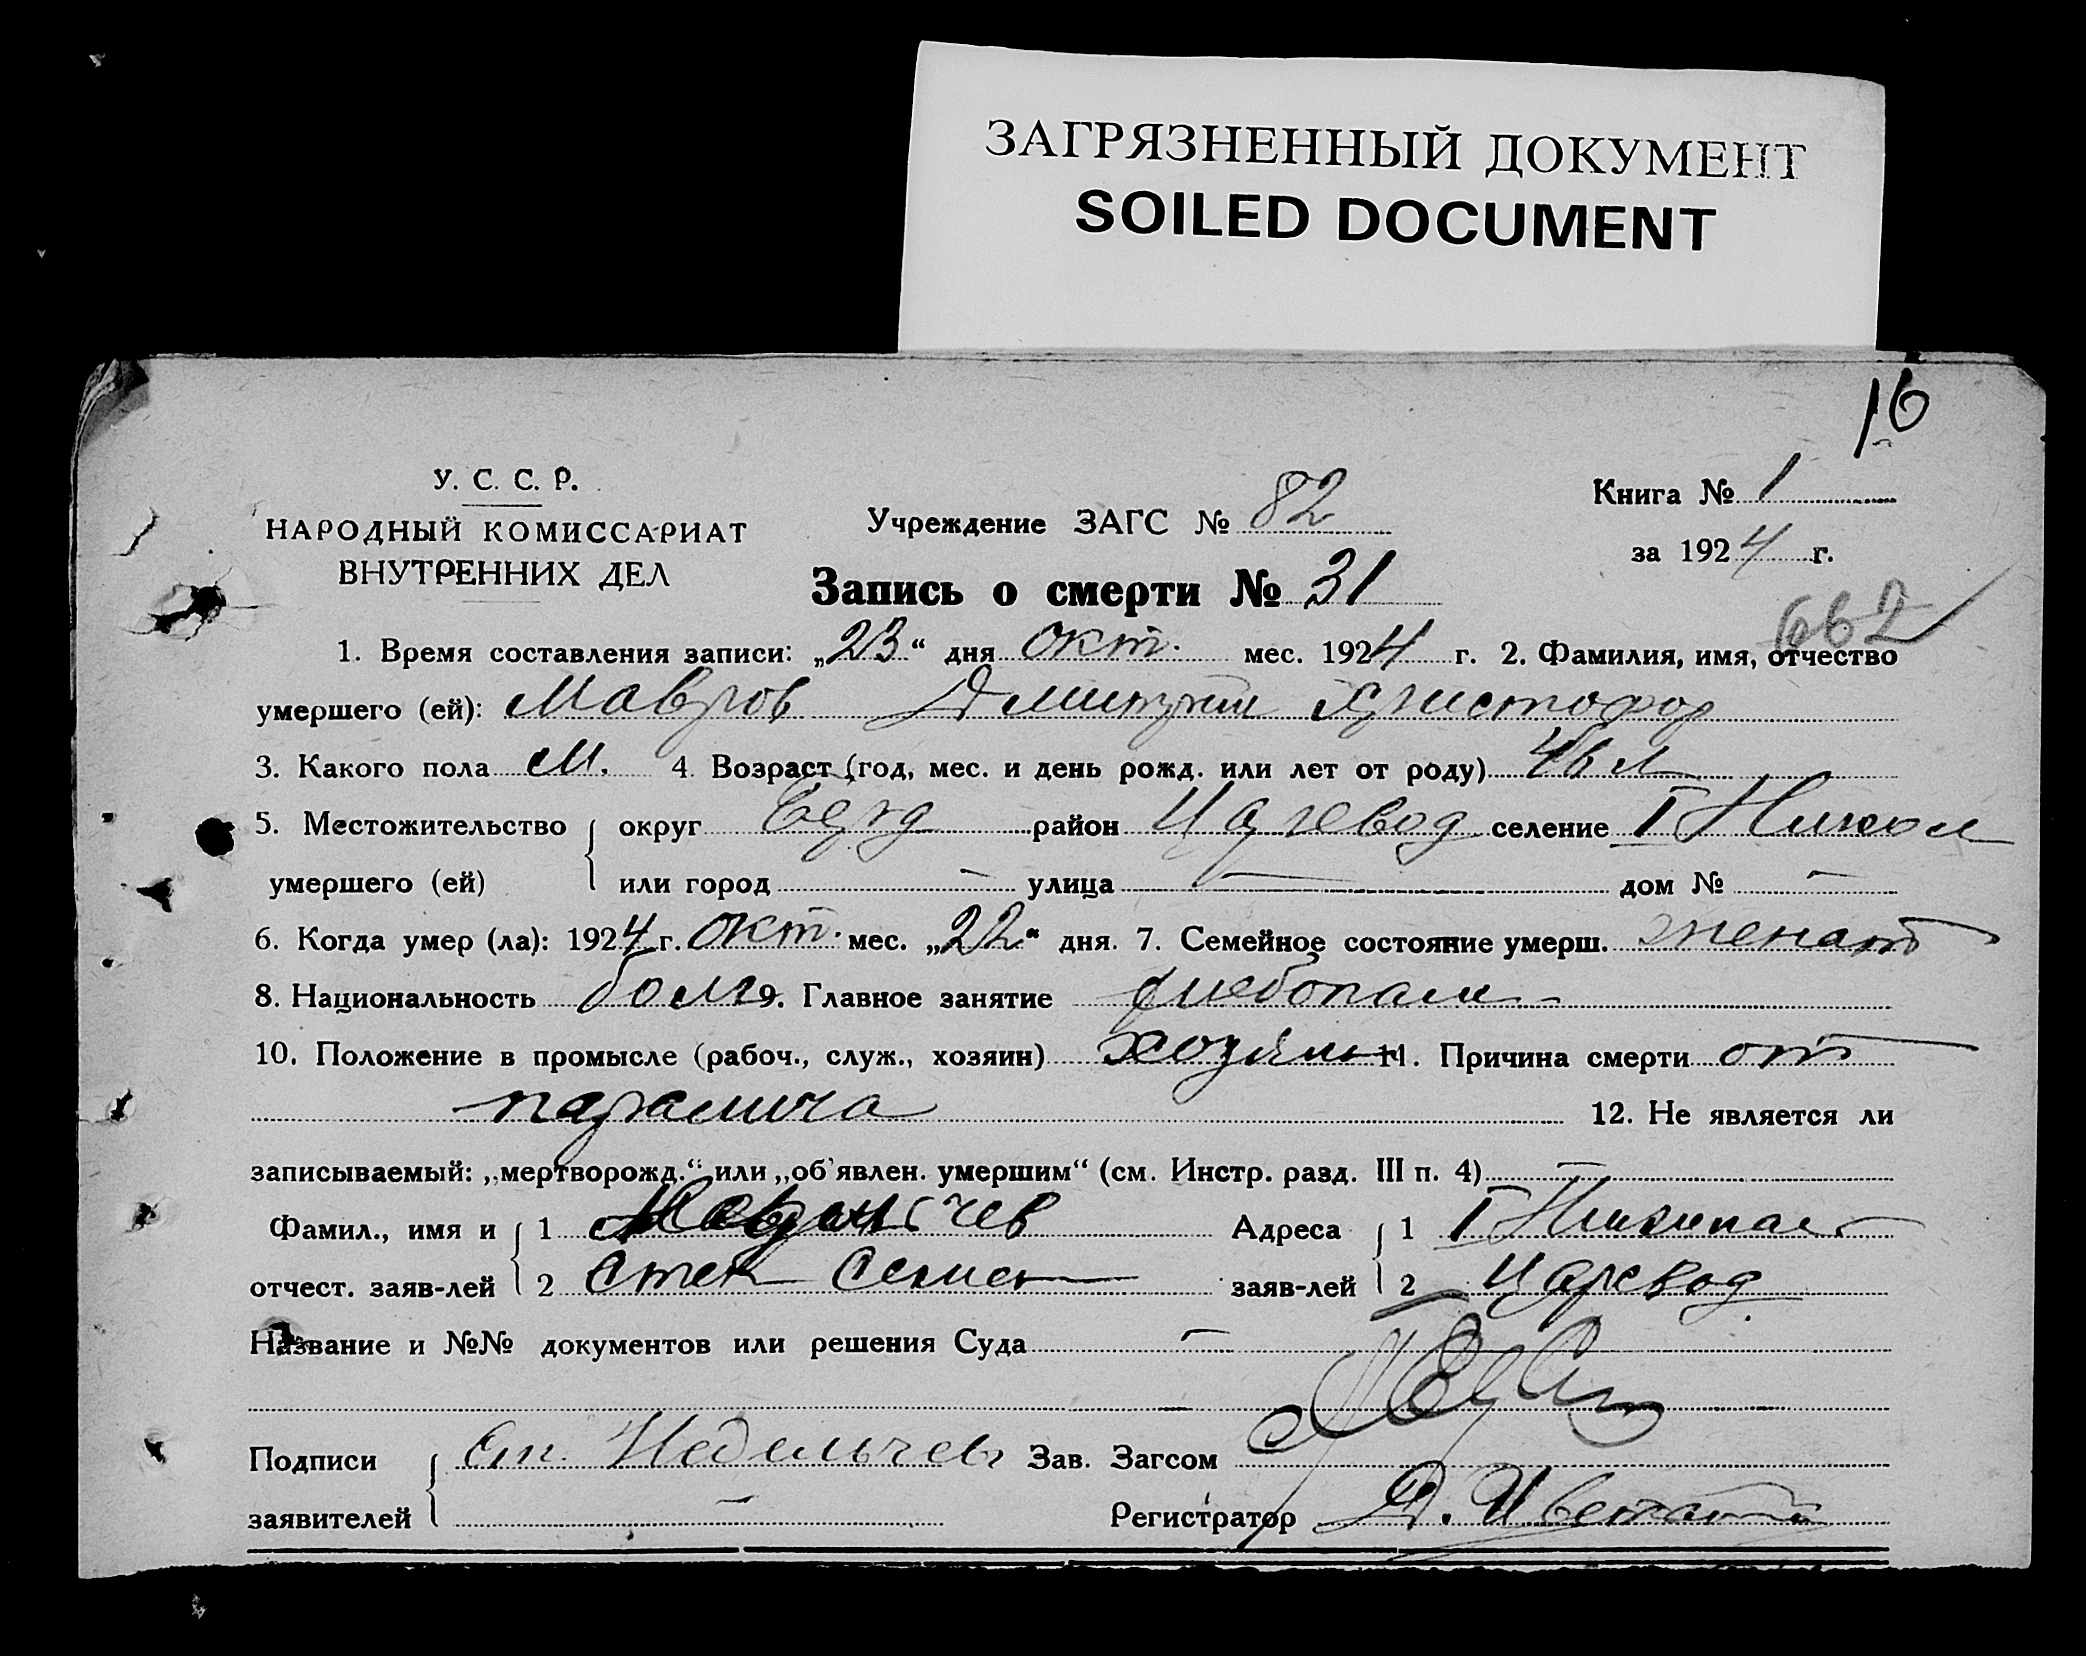 ЗАГРЯЗНЕННЫЙ ДОКУМЕНТ
SOILED DOCUMENT
16
У. С. С. Р.
НАРОДНЫЙ КОМИССАРИАТ
ВНУТРЕННИХ ДЕЛ
Учреждение ЗАГС № 82
Книга № 1
за 1924 г.
Запись о смерти № 31
662
1. Время составления записи: „23“ дня окт. мес. 1924 г. 2. Фамилия, имя, отчество
умершего (ей): Мавров Дмитрий Христофор
3. Какого пола М. 4. Возраст (год, мес. и день рожд. или лет от роду) 46 л
5. Местожительство округ Берд район Царевод селение I Никол
умершего (ей) или город — улица — дом № —
6. Когда умер (ла): 1924 г. окт. мес. „22“ дня. 7. Семейное состояние умерш. женат
8. Национальность болг 9. Главное занятие хлебопаш
10. Положение в промысле (рабоч., служ., хозяин) хозяин 11. Причина смерти от
паралича 12. Не является ли
записываемый: „мертворожд.“ или „об'явлен. умершим“ (см. Инстр. разд. III п. 4) —
Фамил., имя и 1 Адреса 1 I
отчест. заяв-лей 2 Степ Семен заяв-лей 2 Царевод
Название и №№ документов или решения Суда —
Подписи Ст. Недельчев Зав. Загсом
заявителей — Регистратор Д.